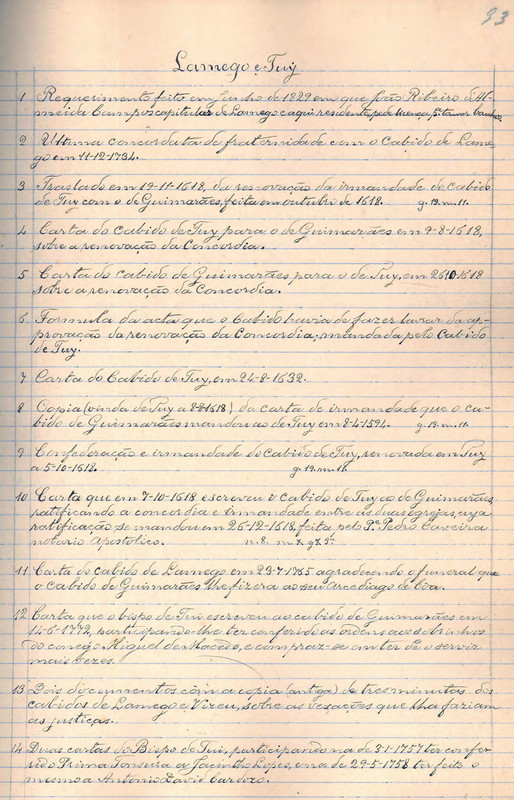 93
Lamego e Tuy
1 Requerimento feito em Junho de 1829 em que João Ribeiro d'Al-
meida Campos capitular de Lamego e aqui residente pede licença p.ª tomar banhos.
2 Ultima concordata de fraternidade com o Cabido de Lame-
go em 11-12-1734.
3 Traslado em 19-11-1618, da renovação da irmandade do cabido
de Tuy com o de Guimarães, feita em outubro de 1618. g. 13. m. 11.
4 Carta do Cabido de Tuy para o de Guimarães em 9-8-1618,
sobre a renovação da Concordia.
5 Carta do cabido de Guimarães para o de Tuy, em 26-10-1618
sobre a renovação da Concordia.
6 Formula da acta que o Cabido havia de fazer lavrar da ap-
provação da renovação da Concordia; mandada pelo Cabido
de Tuy.
7 Carta do Cabido de Tuy, em 24-8-1632.
8 Copia (vinda de Tuy a 8-8-1618) da carta de irmandade que o ca-
bido de Guimarães mandou ao de Tuy em 8-4-1594. g. 13. m. 11.
9 Confederação e irmandade do Cabido de Tuy, renovada em Tuy
a 5-10-1618. g. 13. m. 11.
10 Carta que em 7-10-1618 escreveu o Cabido de Tuy ao de Guimarães
ratificando a concordia e irmandade entre as duas egrejas, cuja
ratificação se mandou em 26-12-1618, feita pelo P.e Pedro Caveira
notario Apostolico. n. 8. m.
11 Carta do cabido de Lamego em 23-7-1765 agradecendo o funeral que
o cabido de Guimarães lhe fizera ao seu Arcediago de Côa.
12 Carta que o bispo de Tui escreveu ao cabido de Guimarães em
14-6-1772, participando-lhe ter conferido as ordens aos sobrinhos
do conego Miguel de Macedo, e compraz-se em ter de o servir
mais vezes.
13 Dois documentos com a copia (antiga) de tres minutas dos
cabidos de Lamego e Vizeu, sobre as vexações que lhe faziam
as justiças.
14 Duas cartas do Bispo de Tui, participando na de 3-1-1757 ter confe-
rido Prima Tonsura a Jacintho Lopes, e na de 29-5-1758 ter feito o
mesmo a Antonio David Cardozo.